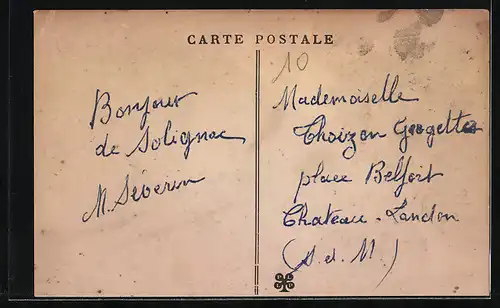 CARTE POSTALE
10
Bonjour
de Solignac
M. Séverin
Mademoiselle
Thoizon Georgette
place Belfort
Chateau-Landon
(S. et M.)